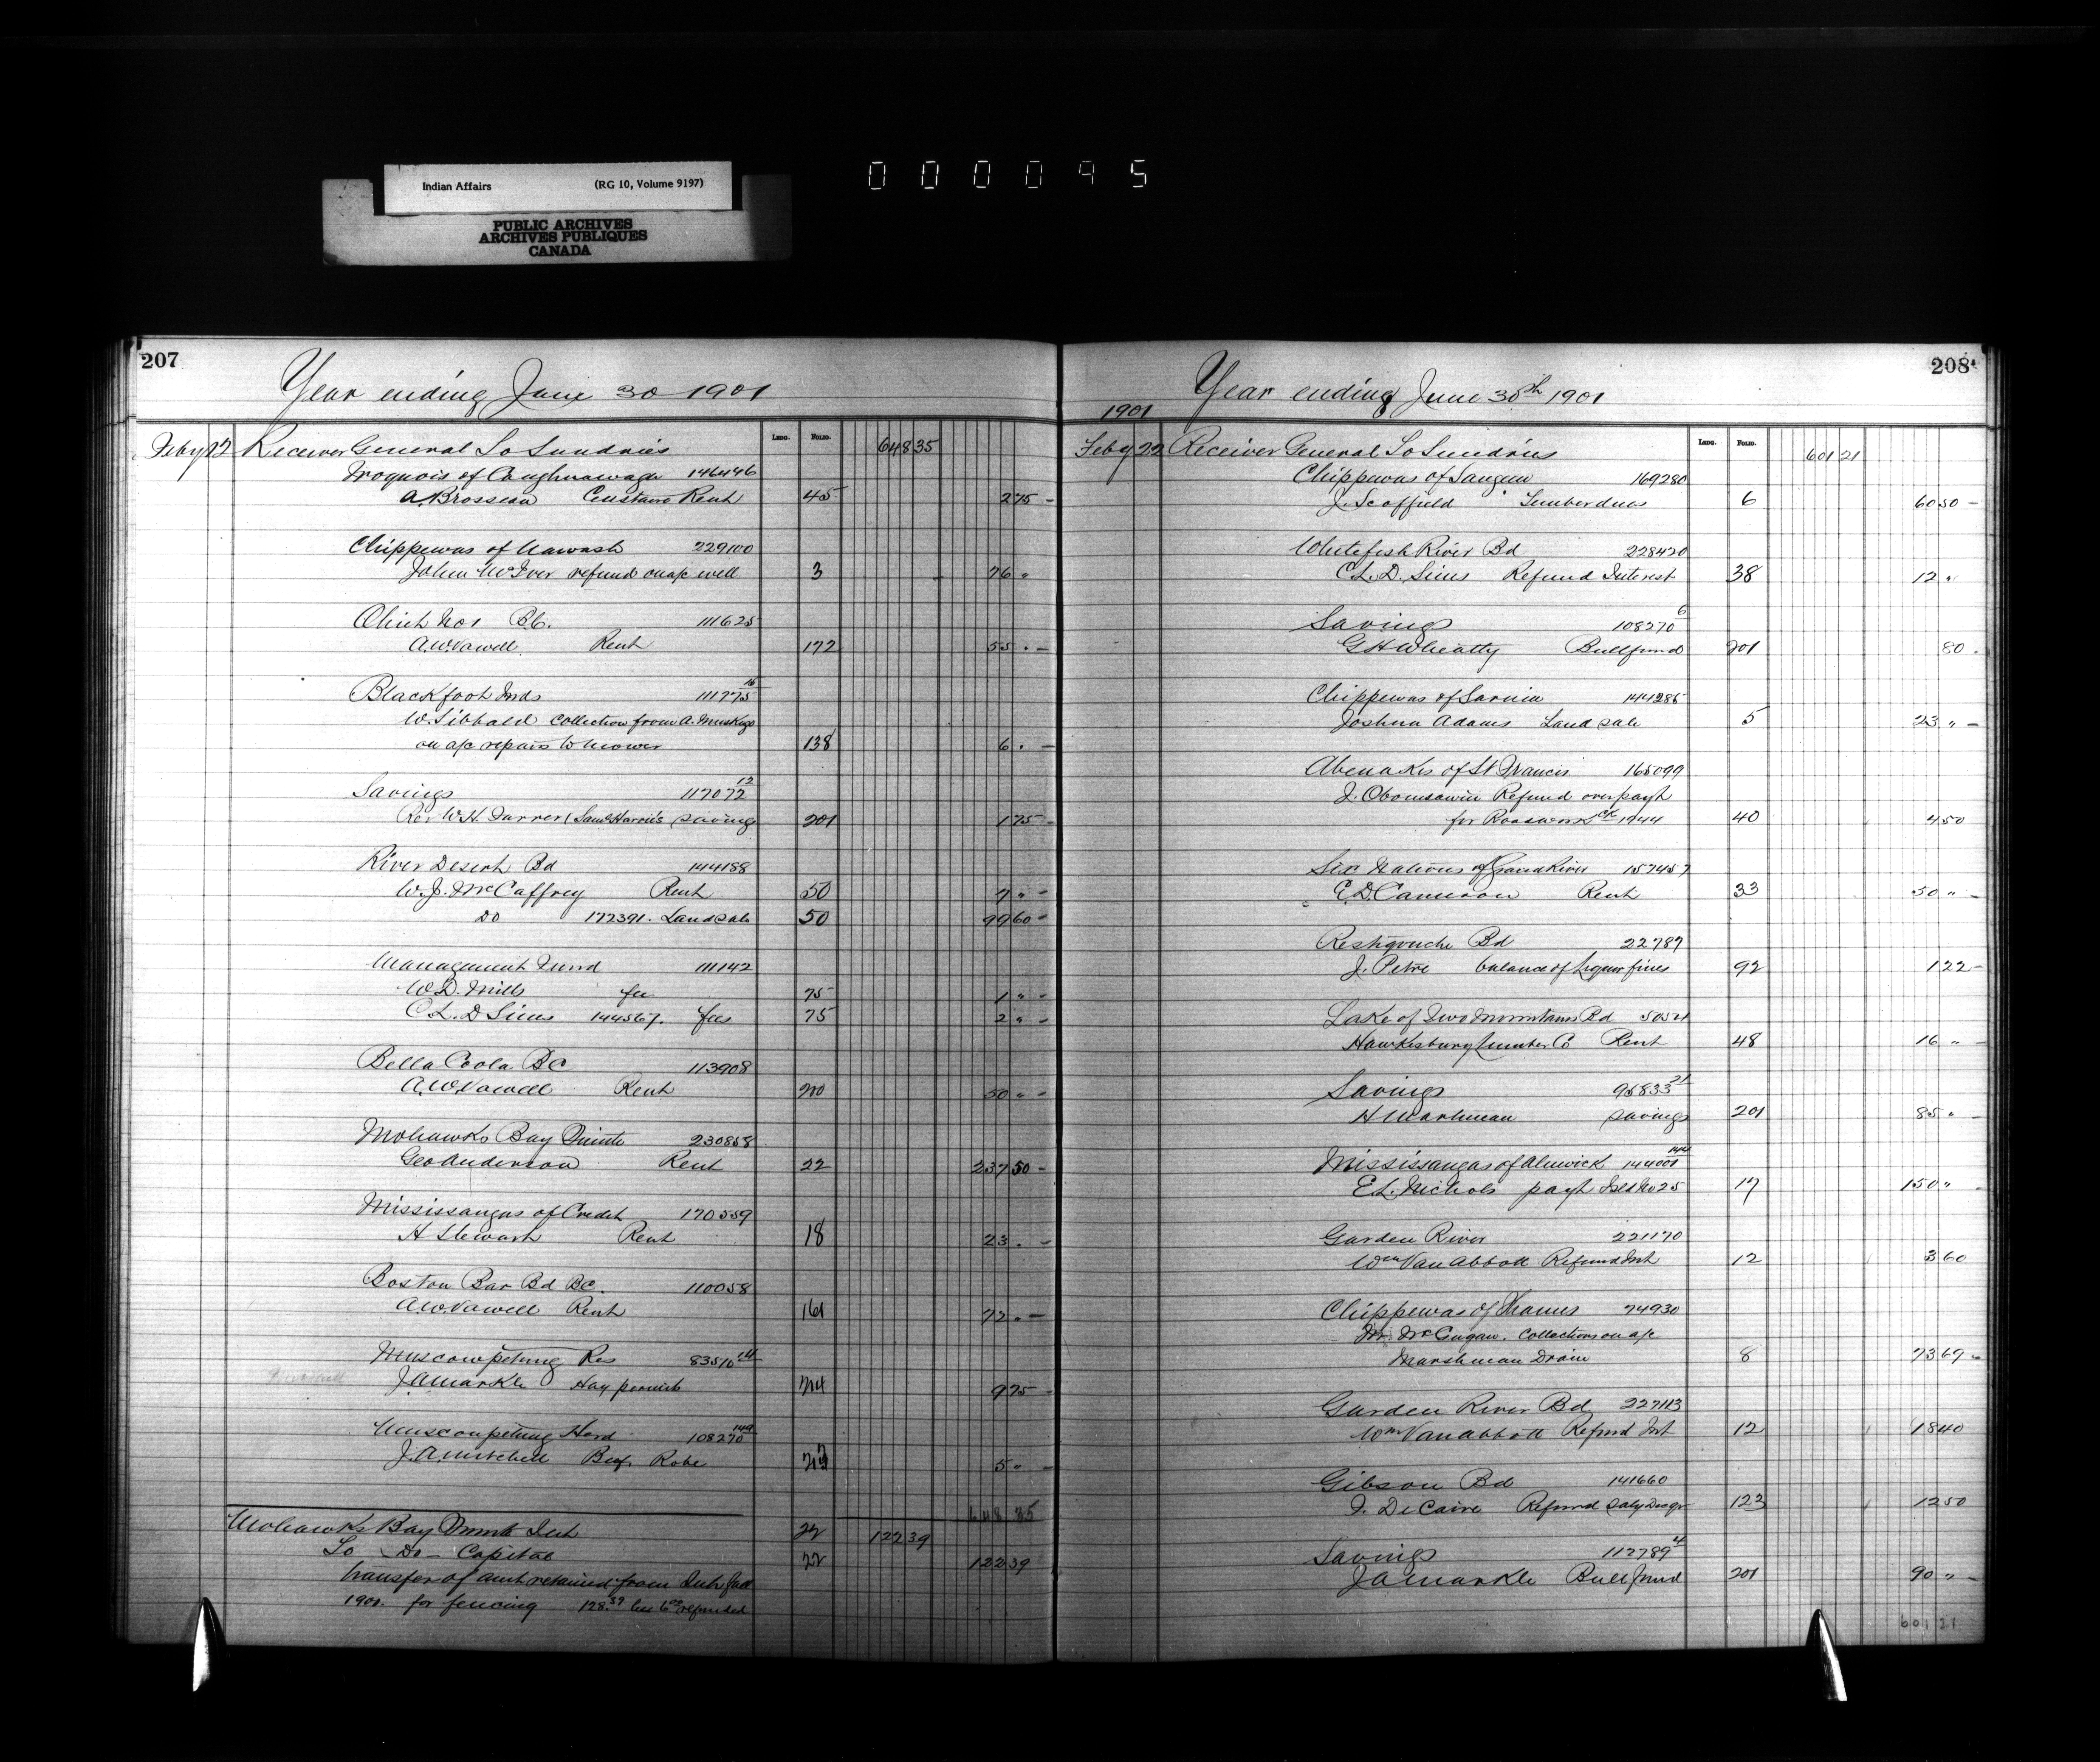 Indian Affairs (RG 10, Volume 9197)
PUBLIC ARCHIVES
ARCHIVES PUBLIQUES
CANADA
000095
207
Year ending June 30 1901
Ledg. Folio.
Feby 22 Receiver General To Sundries 648 35
Iroquois of Caughnawaga 146446
A. Brosseau Rent 45 2 75 -
Chippewas of Nawash 229100
John McIver refund on a/c well 3 76 "
No 1 B.C. 111625
A.W. Vowell Rent 172 55 . -
Blackfoot Inds 111775 16
W. Sibbald collection from A. Muskego
on a/c repairs to mower 138 6 . -
Savings 117072 12
Rev W.H. (Saml Harris savings 201 1 75 -
River Desert Bd 144188
W.J. McCaffrey Rent 50 7 " -
Do 172391. Land sale 50 99 60 -
Management Fund 111142
W.D. Mills fee 75 1 " -
C.L.D Sims 144567. fees 75 2 " -
Bella Coola BC 113908
A.W. Vowell Rent 200 50 " -
Mohawks Bay Quinte 230858
Geo Anderson Rent 22 237 50 -
Mississaugas of Credit 170559
H Stewart Rent 18 23 . -
Boston Bar Bd BC. 110058
A.W. Vowell Rent 161 72 . -
Muscowpetung Res 83510 14
J.A. Markle Hay permits 9 75 -
Muscowpetung Herd 108270 149
J.A. Mitchell Robe 5 " -
648 35
Mohawks Bay Quinte Int 22 122 39
To Do - Capital 22 122 39
transfer of amt retained from Int
1901. for fencing 128.39 less 6 00 refunded
208
Year ending June 30th 1901
1901
Ledg. Folio.
Feby 22 Receiver General To Sundries 601 21
Chippewas of Saugeen 169280
J. Scoffield Timber dues 6 60 50 -
Whitefish River Bd 228420
C.L.D. Sims Refund Interest 38 12 "
Savings 108270 6
G H Wheatly Bull fund 201 80 .
Chippewas of Sarnia 144285
Joshua Adams Land sale 5 23 " -
Abenakis of St Francis 165099
J. Obomsawin Refund over payt
for Roadwork ck 1944 40 4 50
Six Nations of Grand River 157457
E.D. Cameron Rent 33 50 " -
Restigouche Bd 22787
J. Pitre balance of liquor fines 92 1 22 -
Lake of Two Mountains Bd 50521
Hawkesbury Lumber Co Rent 48 16 " -
Savings 95833 21
H Martineau savings 201 85 "
Mississaugas of Alnwick 144001 144
E.L. Nichols payt Isld No 25 17 150 " -
Garden River 221170
Wm Van Abbott Refund Int 12 3 60
Chippewas of Thames 74930
Mr. McGugan. Collections on a/c
Marshman Drain 8 73 69 -
Garden River Bd 227113
Wm Van Abbott Refund Int 12 18 40
Gibson Bd 141660
F. DeCaire Refund 123 12 50
Savings 112789 4
J A Markle Bull fund 201 90 " -
601 21